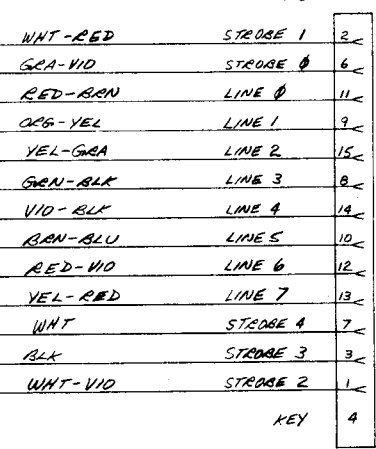 WHT-RED STROBE 1 2
GRA-VIO STROBE 0 6
RED-BRN LINE 0 11
ORG-YEL LINE 1 9
YEL-GRA LINE 2 15
GRN-BLK LINE 3 8
VIO-BLK LINE 4 14
BRN-BLU LINE 5 10
RED-VIO LINE 6 12
YEL-RED LINE 7 13
WHT STROBE 4 7
BLK STROBE 3 3
WHT-VIO STROBE 2 1
KEY 4